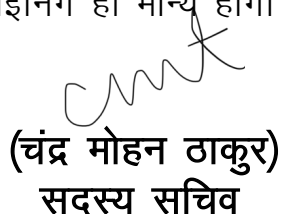 हा मान्य होगा
(चंद्र मोहन ठाकुर)
सदस्य सचिव